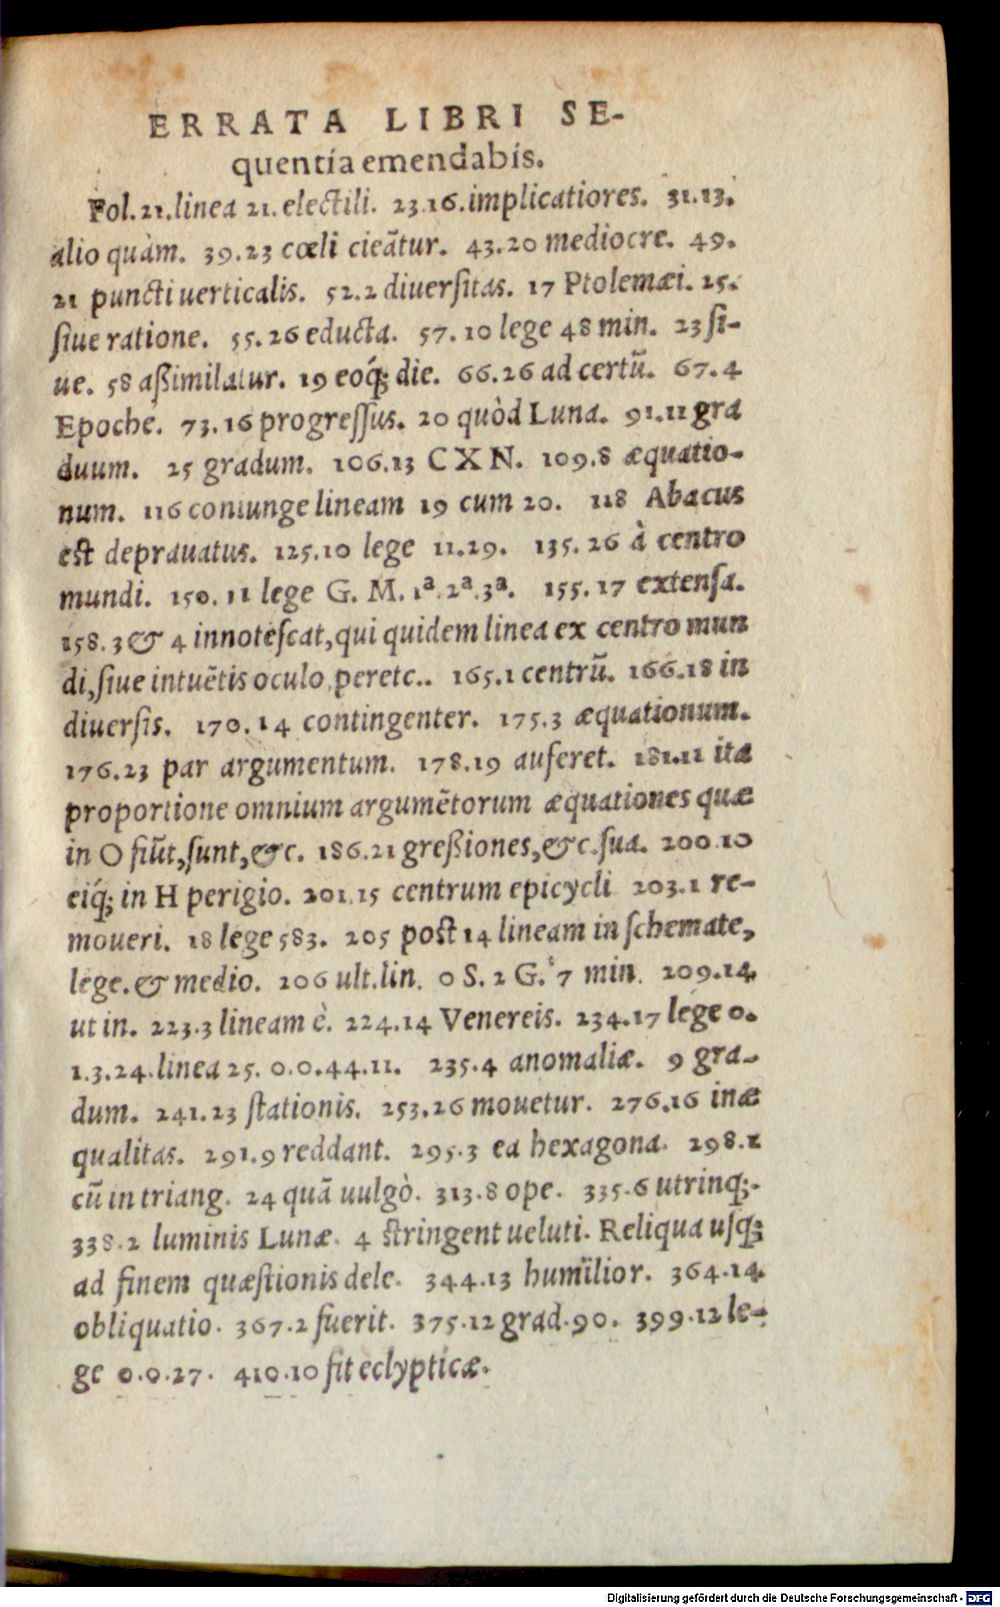 ERRATA LIBRI SE-
quentia emendabis.
Fol. 21. linea 21. electili. 23.16. implicatiores. 31.13.
alio quàm. 39.23 cœli cieãtur. 43.20 mediocre. 49.
21 puncti uerticalis. 52.2 diuersitas. 17 Ptolemæi. 25.
siue ratione. 55.26 educta. 57.10 lege 48 min. 23 si-
ue. 58 aßimilatur. 19 eoq́; die. 66.26 ad certũ. 67.4
Epoche. 73.16 progressus. 20 quòd Luna. 91.11 gra
duum. 25 gradum. 106.13 CXN. 109.8 æquatio-
num. 116 coniunge lineam 19 cum 20. 118 Abacus
est deprauatus. 125.10 lege 11.29. 135.26 à centro
mundi. 150.11 lege G. M. 1ª. 2ª. 3ª. 155.17 extensa.
158.3 & 4 innotescat, qui quidem linea ex centro mun
di, siue intuẽtis oculo, per etc.. 165.1 centrũ. 166.18 in
diuersis. 170.14 contingenter. 175.3 æquationum.
176.23 par argumentum. 178.19 auferet. 181.11 ita
proportione omnium argumẽtorum æquationes quæ
in O fiũt, sunt, &c. 186.21 greßiones, &c. sua. 200.10
eiq́; in H perigio. 201.15 centrum epicycli 203.1 re-
moueri. 18 lege 583. 205 post 14 lineam in schemate,
lege. & medio. 206 ult. lin. 0 S. 2 G. 7 min. 209.14.
ut in. 223.3 lineam è. 224.14 Venereis. 234.17 lege 0.
1.3.24. linea 25. 0.0.44.11. 235.4 anomaliæ. 9 gra-
dum. 241.23 stationis. 253.26 mouetur. 276.16 inæ
qualitas. 291.9 reddant. 295.3 ea hexagona. 298.1
cũ in triang. 24 quã uulgò. 313.8 ope. 335.6 utrinq;.
338.2 luminis Lunæ. 4 stringent ueluti. Reliqua usq;
ad finem quæstionis dele. 344.13 humilior. 364.14.
obliquatio. 367.2 fuerit. 375.12 grad. 90. 399.12 le-
ge 0.0.27. 410.10 fit eclypticæ.
Digitalisierung gefördert durch die Deutsche Forschungsgemeinschaft - DFG